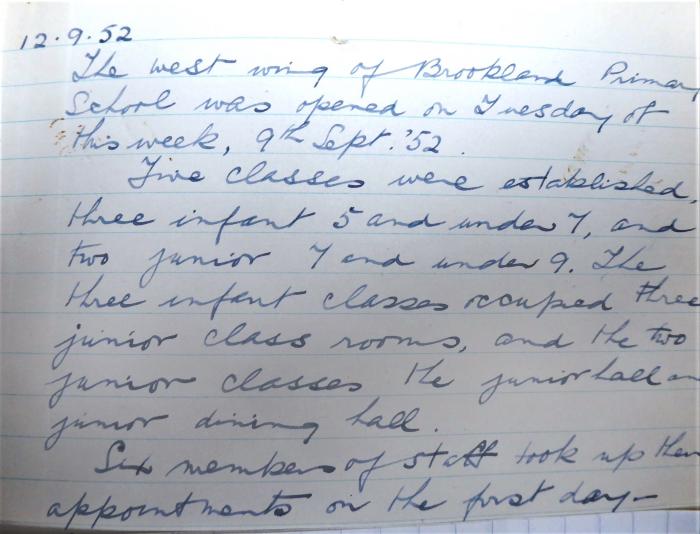 12.9.52
The west wing of Brookland Primary
School was opened on Tuesday of
this week, 9th Sept. '52.
Five classes were established,
three infant 5 and under 7, and
two junior 7 and under 9. The
three infant classes occupied three
junior class rooms, and the two
junior classes the junior hall an
junior dining hall.
Six members of staff took up their
appointments on the first day—